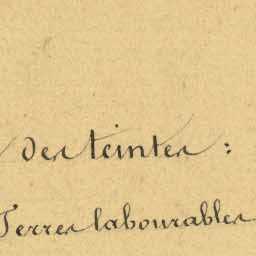 des teintes :
Terres labourables